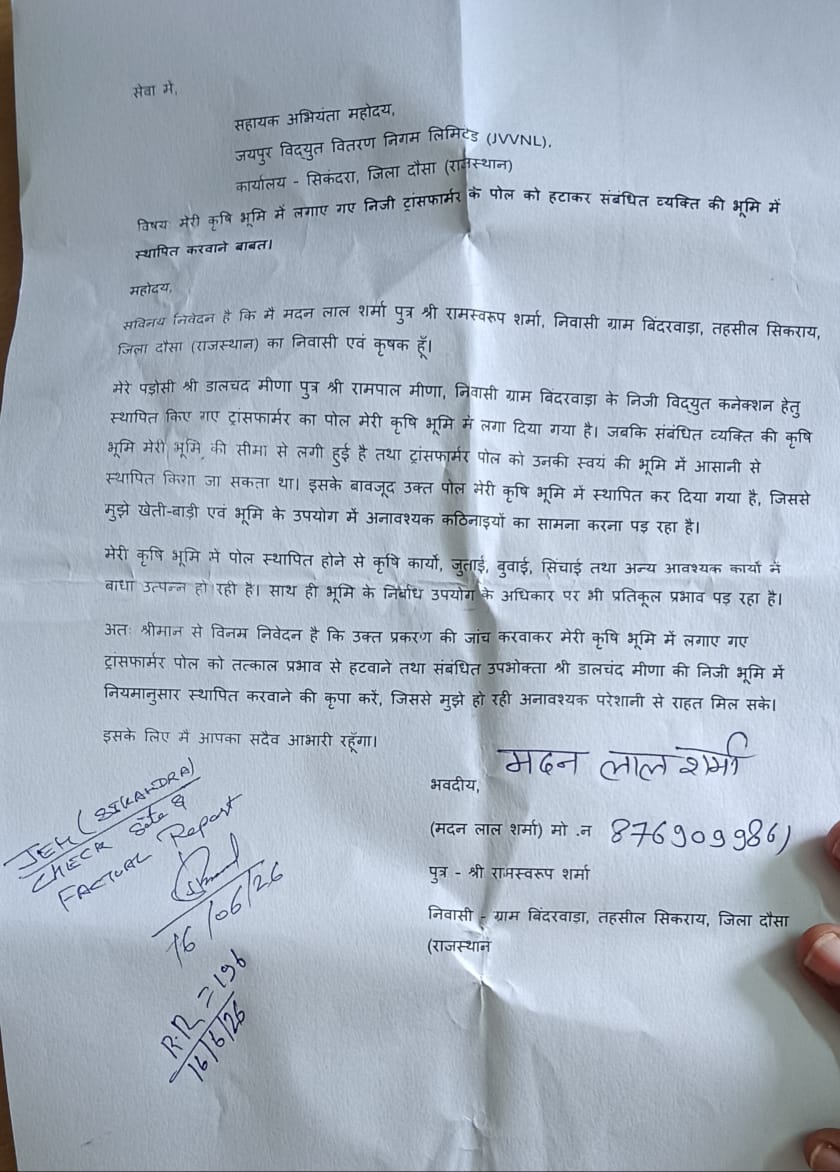 सेवा में,
सहायक अभियंता महोदय,
जयपुर विद्युत वितरण निगम लिमिटेड (JVVNL),
कार्यालय - सिकंदरा, जिला दौसा (राजस्थान)
विषय: मेरी कृषि भूमि में लगाए गए निजी ट्रांसफार्मर के पोल को हटाकर संबंधित व्यक्ति की भूमि में
स्थापित करवाने बाबत।
महोदय,
सविनय निवेदन है कि मैं मदन लाल शर्मा पुत्र श्री रामस्वरूप शर्मा, निवासी ग्राम बिंदरवाड़ा, तहसील सिकराय,
जिला दौसा (राजस्थान) का निवासी एवं कृषक हूँ।
मेरे पड़ोसी श्री डालचद मीणा पुत्र श्री रामपाल मीणा, निवासी ग्राम बिंदरवाड़ा के निजी विद्युत कनेक्शन हेतु
स्थापित किए गए ट्रांसफार्मर का पोल मेरी कृषि भूमि में लगा दिया गया है। जबकि संबंधित व्यक्ति की कृषि
भूमि मेरी भूमि की सीमा से लगी हुई है तथा ट्रांसफार्मर पोल को उनकी स्वयं की भूमि में आसानी से
स्थापित किया जा सकता था। इसके बावजूद उक्त पोल मेरी कृषि भूमि में स्थापित कर दिया गया है, जिससे
मुझे खेती-बाड़ी एवं भूमि के उपयोग में अनावश्यक कठिनाइयों का सामना करना पड़ रहा है।
मेरी कृषि भूमि में पोल स्थापित होने से कृषि कार्यों, जुताई, बुवाई, सिंचाई तथा अन्य आवश्यक कार्यों में
बाधा उत्पन्न हो रही है। साथ ही भूमि के निर्बाध उपयोग के अधिकार पर भी प्रतिकूल प्रभाव पड़ रहा है।
अतः श्रीमान से विनम्र निवेदन है कि उक्त प्रकरण की जांच करवाकर मेरी कृषि भूमि में लगाए गए
ट्रांसफार्मर पोल को तत्काल प्रभाव से हटवाने तथा संबंधित उपभोक्ता श्री डालचंद मीणा की निजी भूमि में
नियमानुसार स्थापित करवाने की कृपा करें, जिससे मुझे हो रही अनावश्यक परेशानी से राहत मिल सके।
इसके लिए मैं आपका सदैव आभारी रहूँगा।
मदन लाल शर्मा
भवदीय,
(मदन लाल शर्मा) मो .न 8769099861
पुत्र - श्री रामस्वरूप शर्मा
निवासी - ग्राम बिंदरवाड़ा, तहसील सिकराय, जिला दौसा
(राजस्थान
JEN (SIKANDRA)
CHECK Site &
FACTUAL Report
16/06/26
R.R = 196
16/6/26